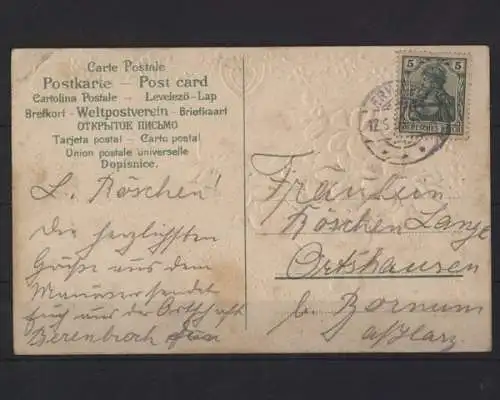 Carte Postale
Postkarte — Post card
Cartolina Postale — Levelező-Lap
Brefkort - Weltpostverein - Briefkaart
ОТКРЫТОЕ ПИСЬМО
Tarjeta postal — Carta postal
Union postale universelle
Dopisnice.
L. Röschen!
die herzlichsten
Grüße aus dem
Manöver sendet
Euch aus der Ortschaft
5 5
DEUTSCHES REICH
12.5
Fräulein
Röschen Lange
Ortshausen
b. Bornum
a/Harz.